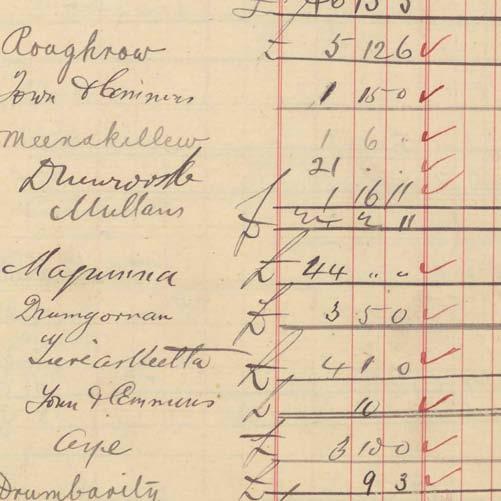 £ 40 15 5
Roughrow £ 5 12 6 ✓
Town & Commons 1 15 0 ✓
Meenakillew 1 6 .. ✓
21 .. .. ✓
Mullans £ 1 16 11 ✓
£ 24 2 11
Magunna £ 44 .. .. ✓
Drumgornan £ 3 5 0 ✓
£ 4 1 0 ✓
Town & Commons £ 10 ✓
£ 3 10 0 ✓
Drumbarity £ 9 3 ✓